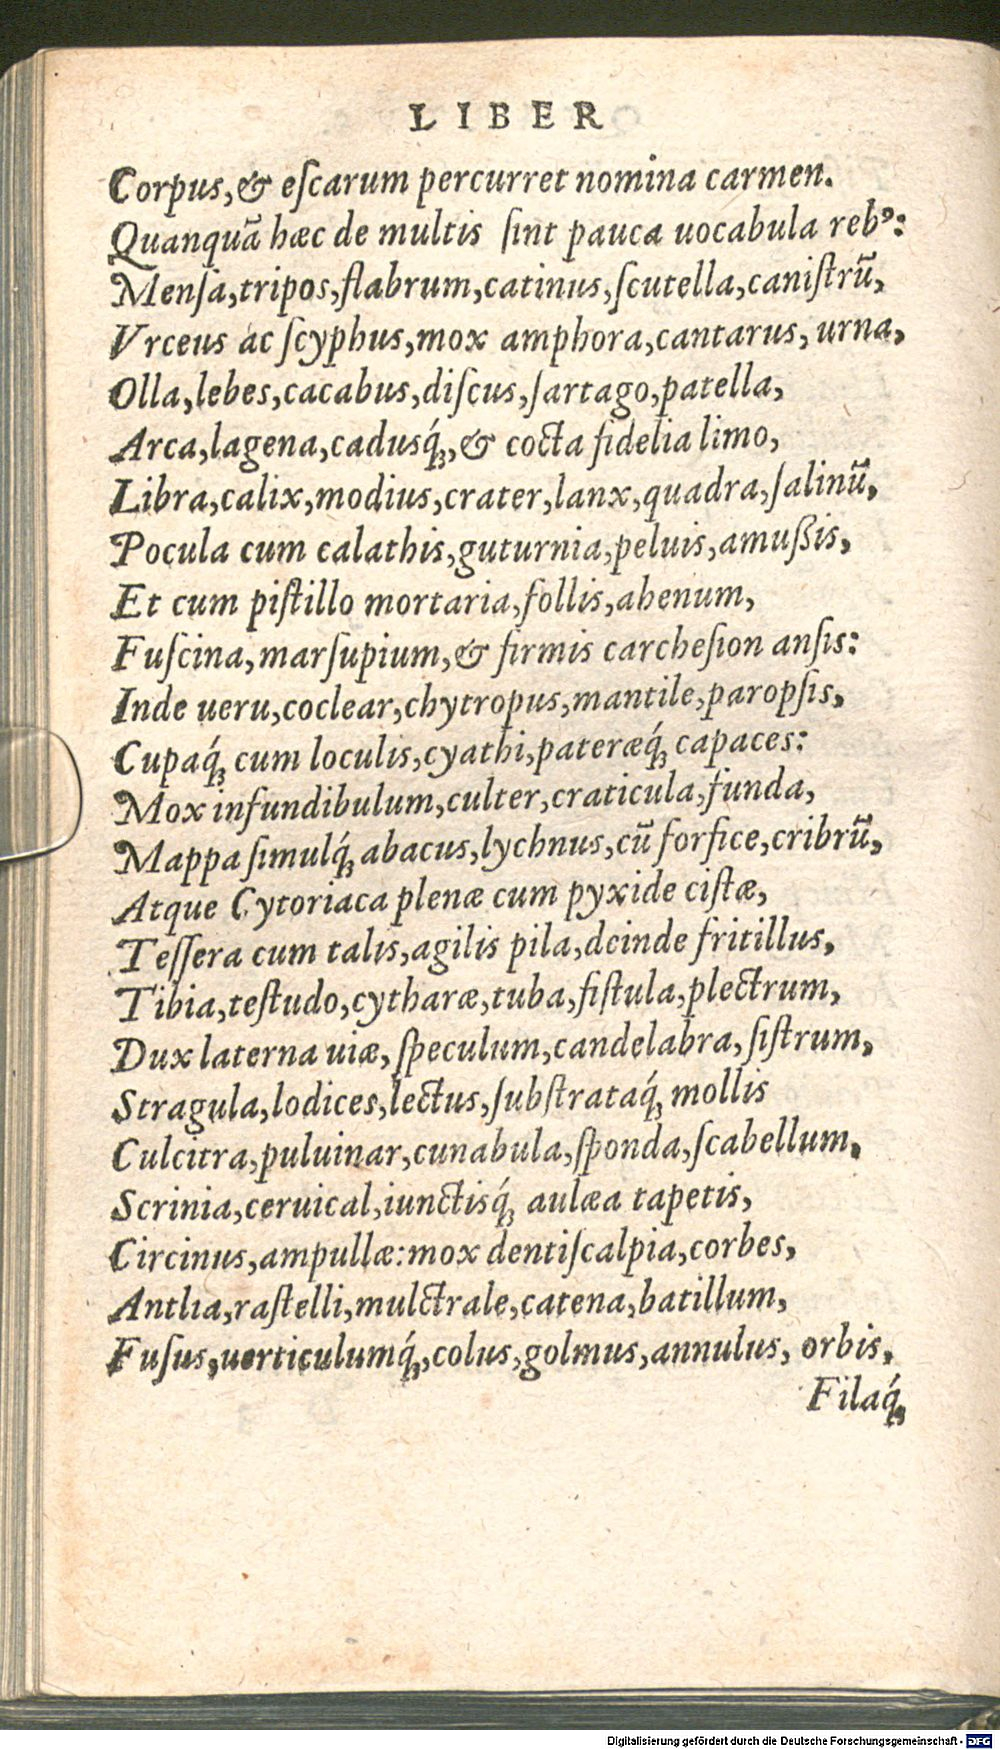 LIBER
Corpus,& eſcarum percurret nomina carmen.
Quanquã hæc de multis ſint pauca uocabula rebꝰ:
Menſa,tripos,flabrum,catinus,ſcutella,caniſtrũ,
Vrceus ac ſcyphus,mox amphora,cantarus, urna,
Olla,lebes,cacabus,diſcus,ſartago,patella,
Arca,lagena,cadusq́;,& cocta fidelia limo,
Libra,calix,modius,crater,lanx,quadra,ſalinũ,
Pocula cum calathis,guturnia,peluis,amußis,
Et cum piſtillo mortaria,follis,ahenum,
Fuſcina,marſupium,& firmis carcheſion anſis:
Inde ueru,coclear,chytropus,mantile,paropſis,
Cupaq́; cum loculis,cyathi,pateræq́; capaces:
Mox infundibulum,culter,craticula,funda,
Mappa ſimulq́; abacus,lychnus,cũ forfice,cribrũ,
Atque Cytoriaca plenæ cum pyxide ciſtæ,
Teſſera cum talis,agilis pila,deinde fritillus,
Tibia,teſtudo,cytharæ,tuba,fiſtula,plectrum,
Dux laterna uiæ, ſpeculum,candelabra,ſiſtrum,
Stragula,lodices,lectus,ſubſtrataq́; mollis
Culcitra,puluinar,cunabula,ſponda,ſcabellum,
Scrinia,ceruical,iunctisq́; aulæa tapetis,
Circinus,ampullæ:mox dentiſcalpia,corbes,
Antlia,raſtelli,mulctrale,catena,batillum,
Fuſus,uerticulumq́;,colus,golmus,annulus, orbis,
Filaq́;
Digitalisierung gefördert durch die Deutsche Forschungsgemeinschaft - DFG